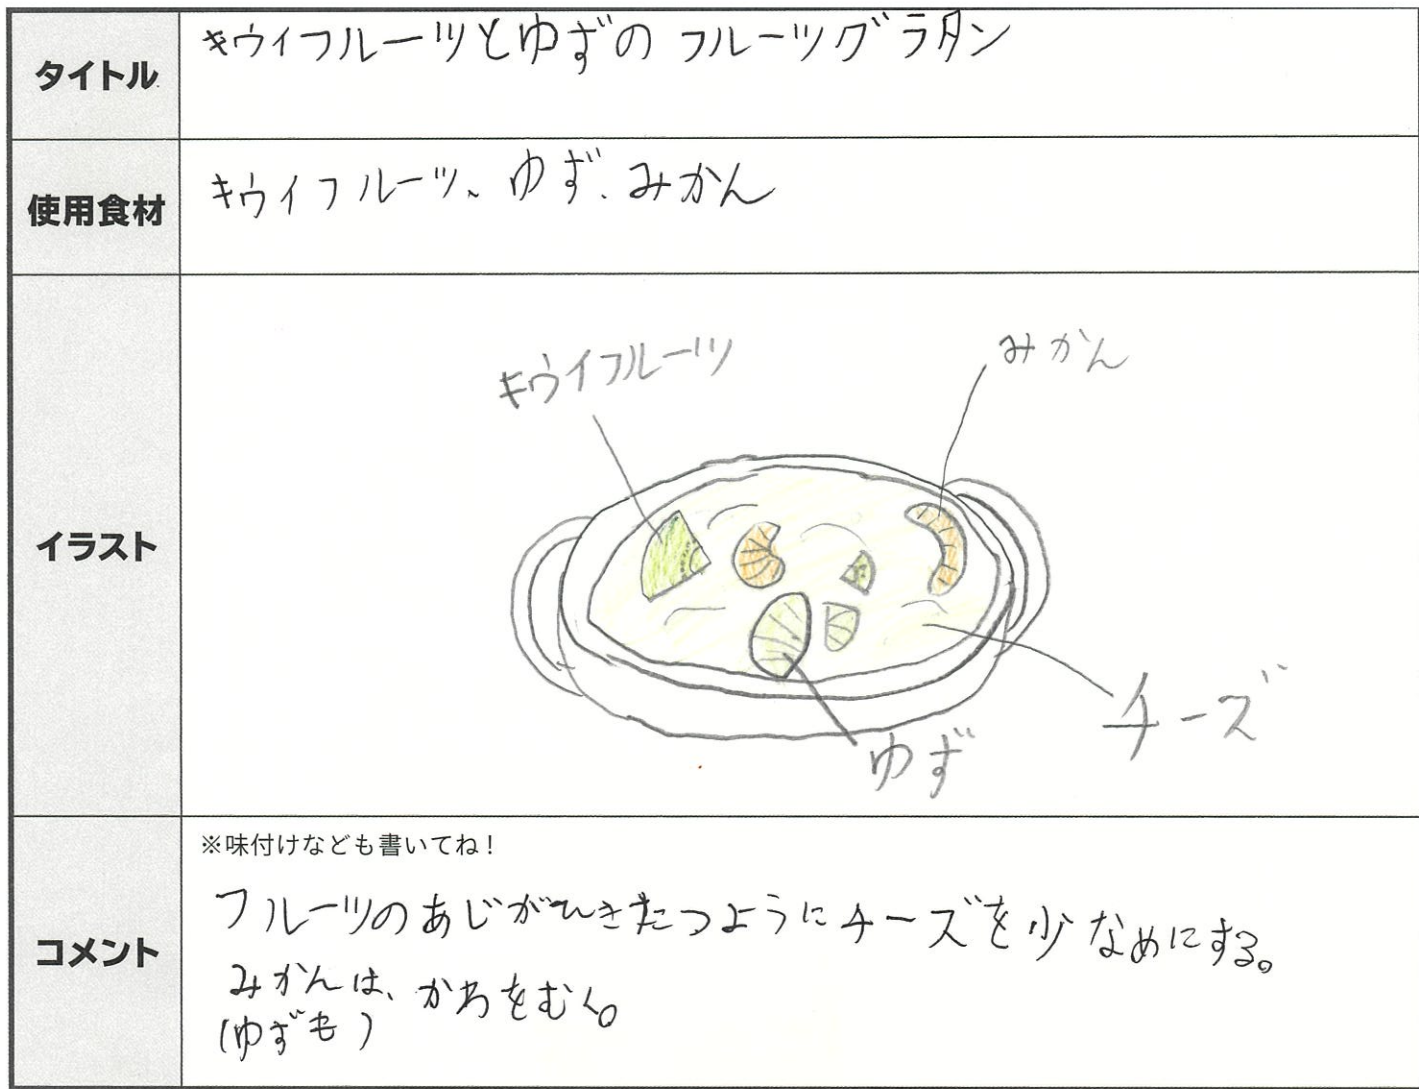 タイトル
キウイフルーツとゆずのフルーツグラタン
使用食材
キウイフルーツ、ゆず、みかん
イラスト
キウイフルーツ
みかん
ゆず
チーズ
コメント
※味付けなども書いてね!
フルーツのあじがひきたつようにチーズを少なめにする。
みかんは、かわをむく。
(ゆずも)